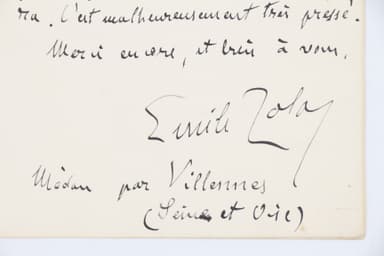 ra. C'est malheureusement très pressé.
Merci encore, et bien à vous,
Emile Zola
Médan par Villennes
(Seine et Oise)